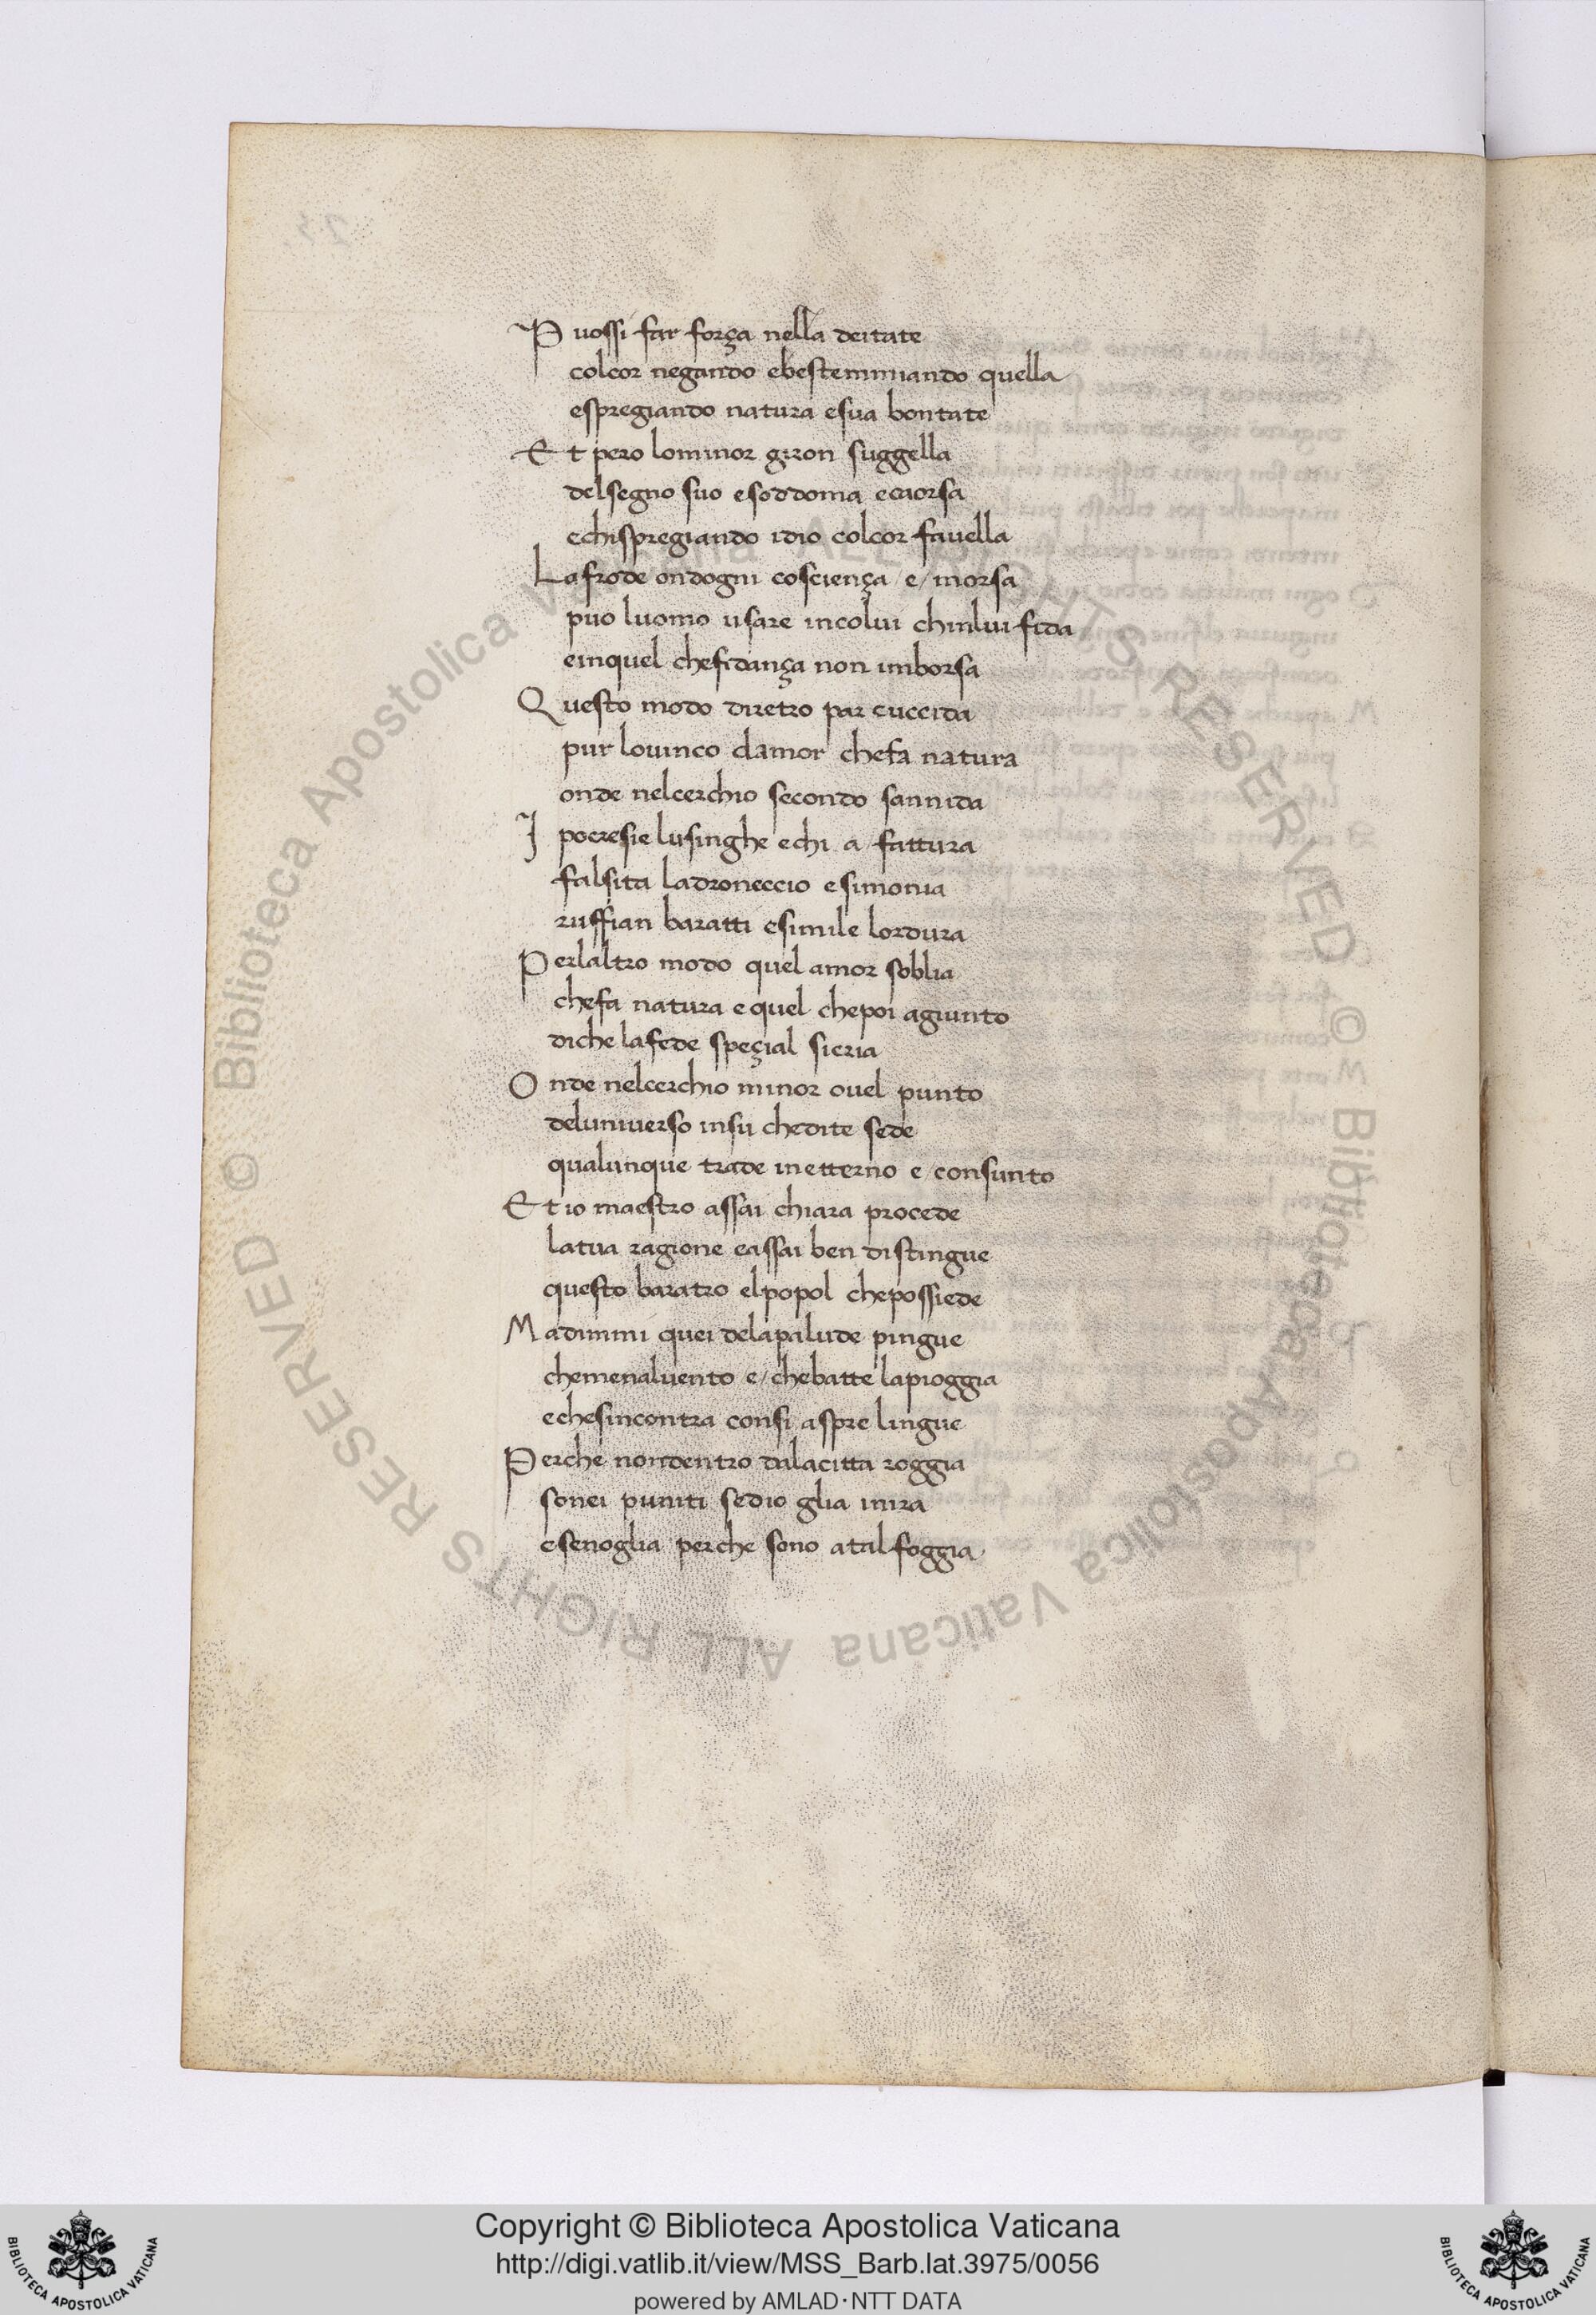 Puossi far força nella deitate
colcor negando ebestemmiando quella
espregiando natura esua bontate
Et pero lominor giron suggella
delsegno suo esoddoma ecaorsa
echispregiando idio colcor fauella
Lafrode ondogni cosciença e/ morsa
puo luomo usare incolui chinlui fida
einquel chefidança non imborsa
Questo modo diretro par cuccida
pur louinco damor chefa natura
onde nelcerchio secondo sannida
Ipocresie lusinghe echi a fattura
falsita ladroneccio esimonia
ruffian baratti esimile lordura
Perlaltro modo quel amor soblia
chefa natura equel chepoi agiunto
diche lafede speçial sicria
Onde nelcerchio minor ouel punto
deluniuerso insu chedite sede
qualunque trade inetterno e/ consunto
Et io maestro assai chiara procede
latua ragione eassai ben distingue
questo baratro elpopol chepossiede
Madimmi quei delapalude pingue
chemenaluento e/ chebatte lapioggia
echesincontra consi aspre lingue
Perche nondentro dalacitta roggia
sonei puniti sedio glia inira
esenoglia perche sono atalfoggia
© Biblioteca Apostolica Vaticana ALL RIGHTS RESERVED © Biblioteca Apostolica Vaticana ALL RIGHTS RESERVED
Copyright © Biblioteca Apostolica Vaticana
http://digi.vatlib.it/view/MSS_Barb.lat.3975/0056
powered by AMLAD·NTT DATA
BIBLIOTECA APOSTOLICA VATICANA
BIBLIOTECA APOSTOLICA VATICANA